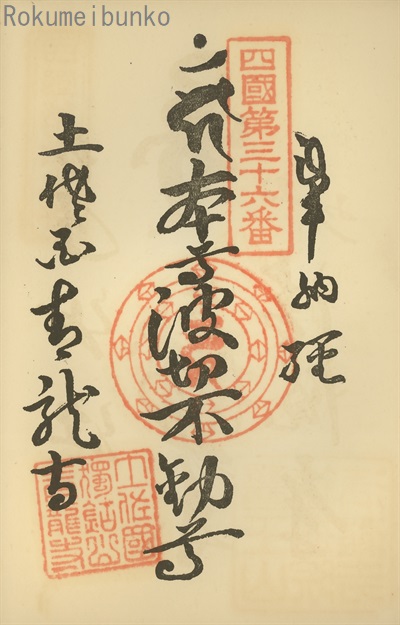 Rokumeibunko
奉納經
四國第三十六番
本尊波切不動尊
土佐国青龍寺
土佐國
獨鈷山
青龍寺